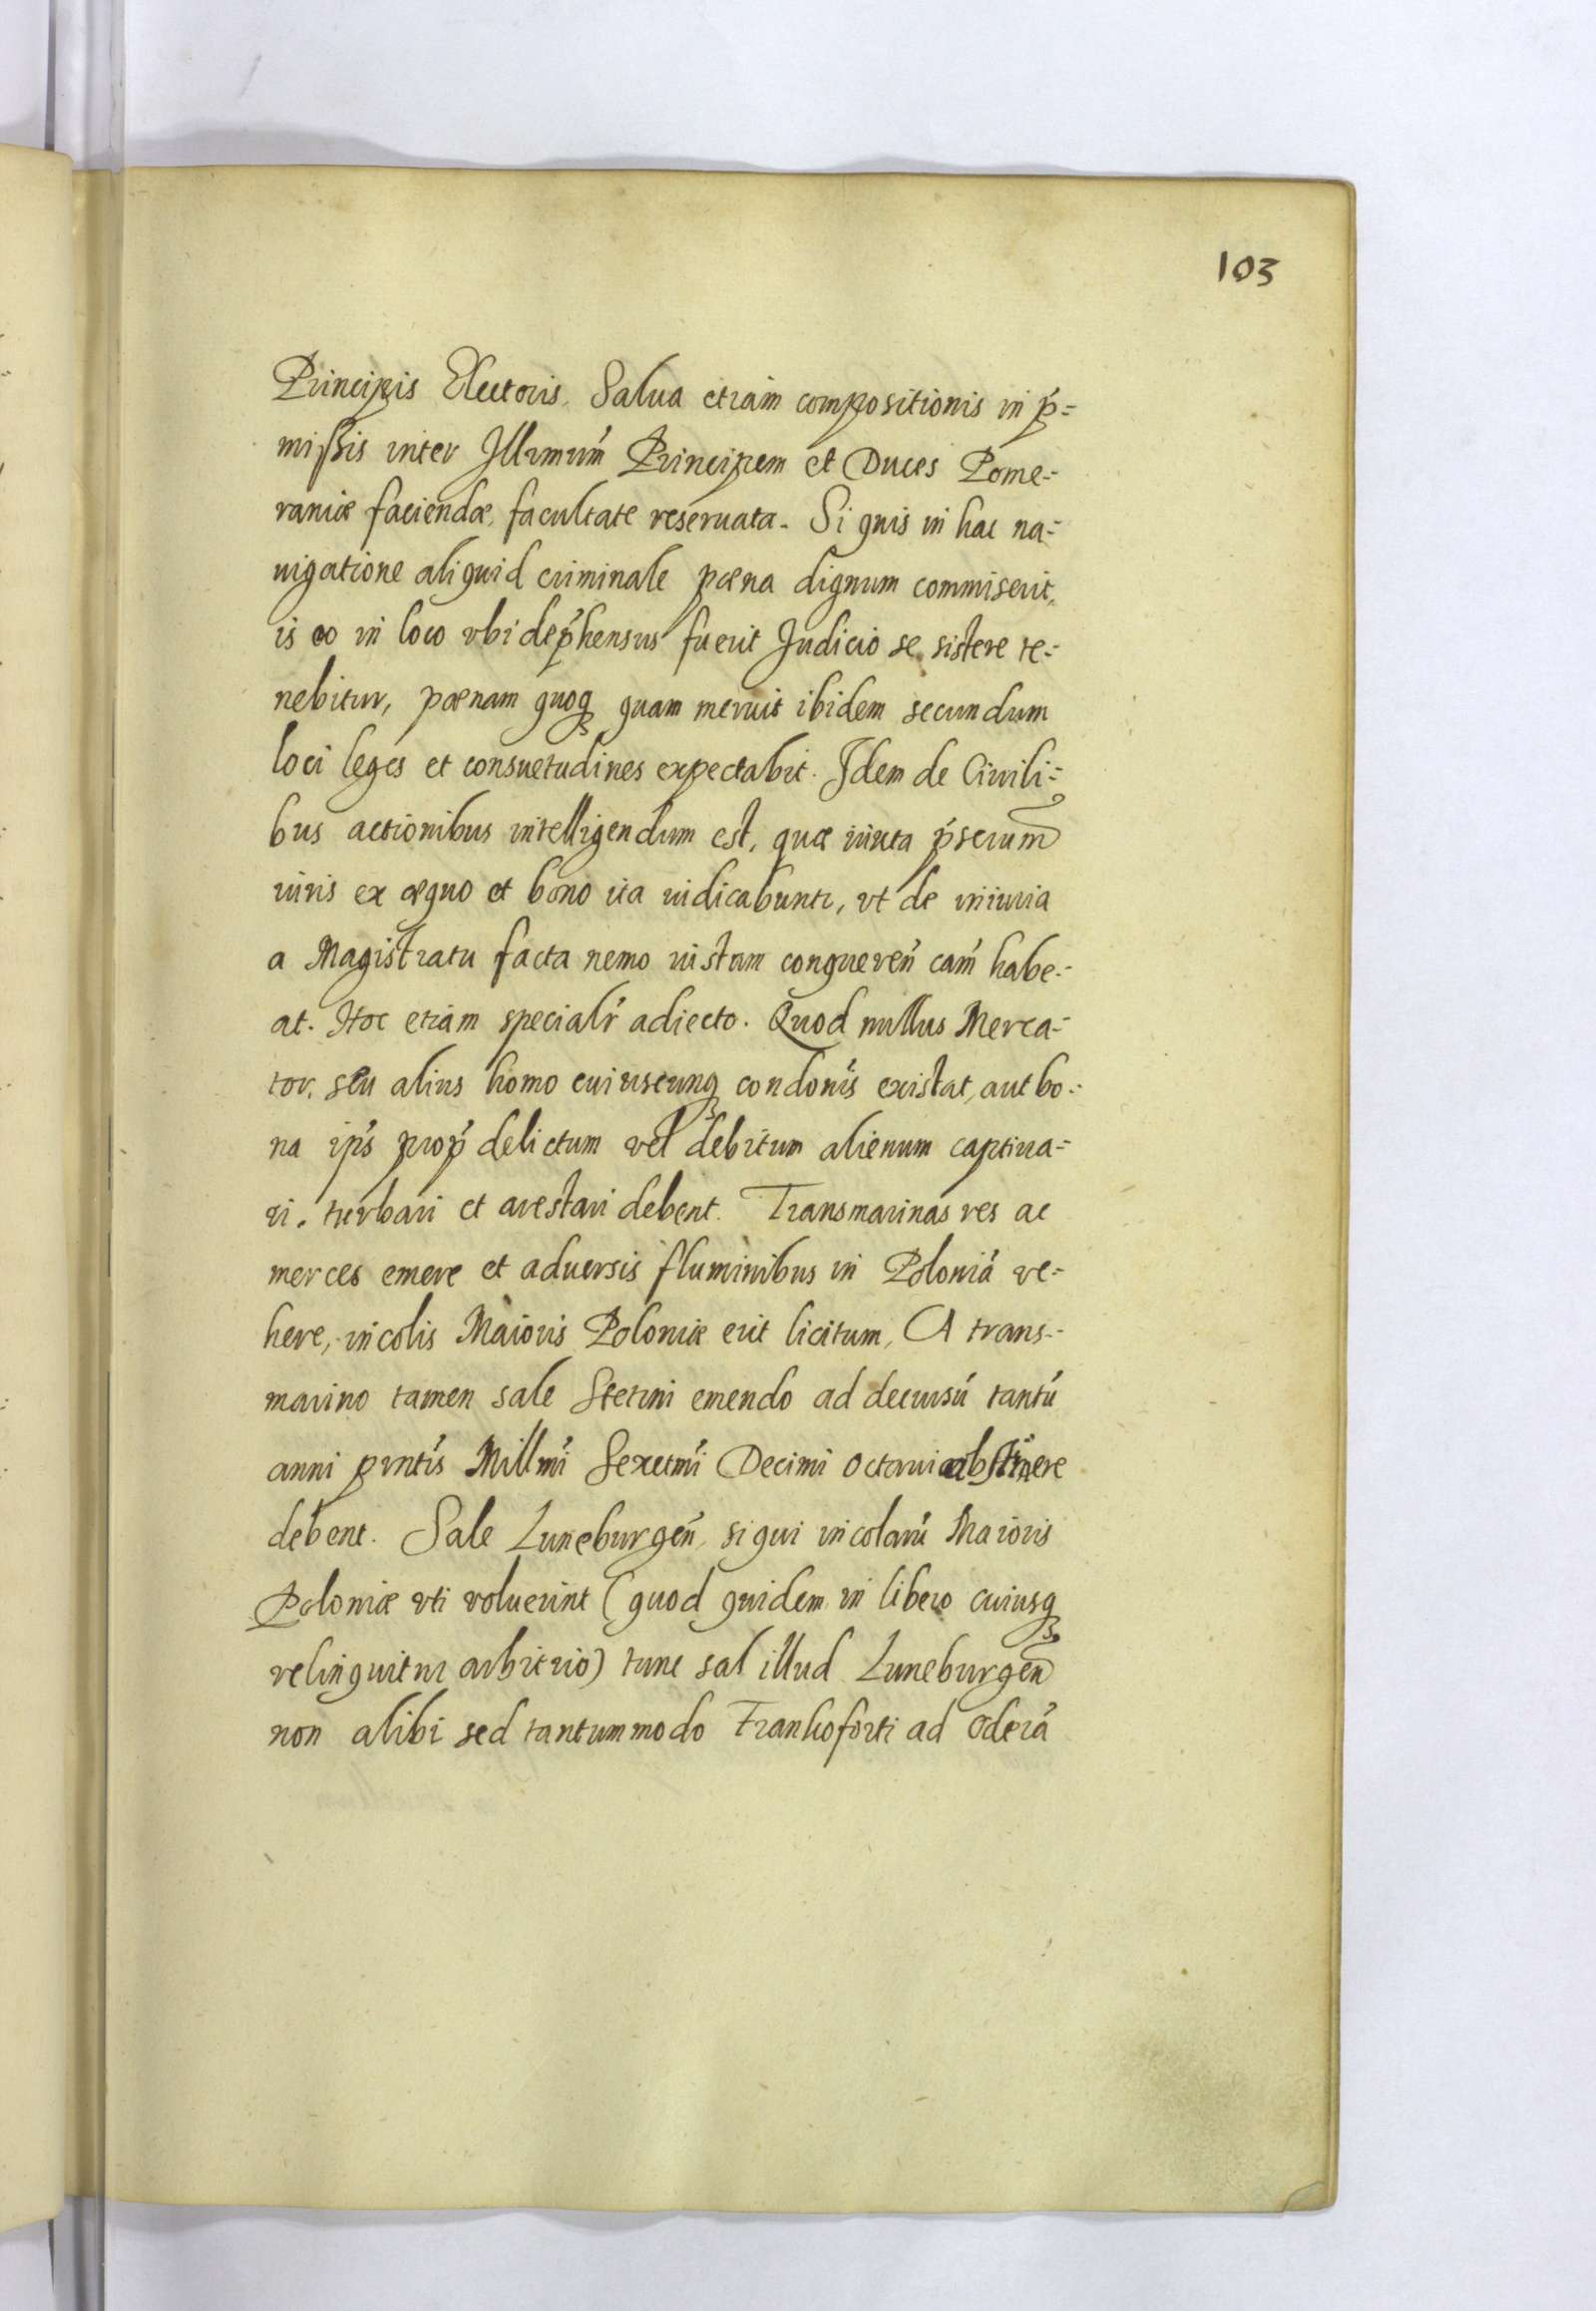 103
Principis Electoris. Salua etiam compositionis in p̄=
missis inter Illr̄mum̄ Principem et Duces Pome=
raniæ faciendæ, facultate reseruata. Si quis in hac na=
uigatione aliquid criminale pœna dignum commiserit,
is eo in loco vbi dep̄hensus fuerit Judicio se sistere te=
nebitur, pœnam quoq̨ quam meruit ibidem secundum
loci leges et consuetudines expectabit. Idem de Ciuili=
bus actionibus intelligendum est, quæ iuxta p̄scrum̄
iuris ex æquo et bono ita iudicabuntr, vt de iniuria
a Magistratu facta nemo iustam conqueren̄ cam̄ habe=
at. Hoc etiam specialr̄ adiecto. Quod nullus Merca=
tor, seu alius homo cuiuscunq̨ condonīs existat, aut bo=
na ip̄s prop̄ delictum vel debitum alienum captiua=
ri. turbari et arestari debent. Transmarinas res ac
merces emere et aduersis fluminibus in Poloniā ve=
here, incolis Maioris Poloniæ erit licitum, A trans=
marino tamen sale Stetini emendo ad decursū tantū
anni prntīs Millmī Sexctmī Decimi Octaui abstinere
debent. Sale Luneburgen̄, si qui incolarū Maioris
Poloniæ vti voluerint (quod quidem in libero cuiusq̨
relinquitur arbitrio) tunc sal illud Luneburgen̄
non alibi sed tantummodo Frankoforti ad Oderā